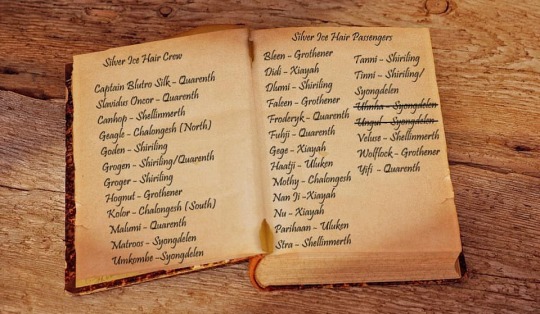 Silver Ice Hair Crew
Captain Blutro Silk - Quarenth
Slavidus Oncor - Quarenth
Canhop - Shellinmerth
Geagle - Chalongesh (North)
Goden - Shiriling
Grogen - Shiriling/Quarenth
Groger - Shiriling
Hognut - Grothener
Kolor - Chalongesh (South)
Malumi - Quarenth
Matroos - Syongdelen
Umkombe - Syongdelen
Silver Ice Hair Passengers
Bleen - Grothener
Didi - Xiayah
Dlumi - Shiriling
Faleen - Grothener
Froderyk - Quarenth
Fuhji - Quarenth
Gege - Xiayah
Haatji - Uluken
Mothy - Chalongesh
Nan Ji - Xiayah
Nu - Xiayah
Parihaan - Uluken
Stra - Shellinmerth
Tanni - Shiriling
Tinni - Shiriling/
Syongdelen
Uhnha - Syongdelen
Ungul - Syongdelen
Veluse - Shellinmerth
Wolflock - Grothener
Yifi - Quarenth